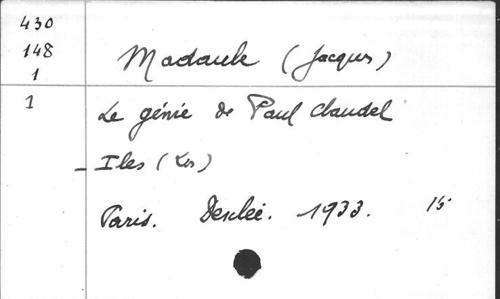 430
148
1
Madaule (Jacques)
1
Le génie de Paul Claudel
- Iles (Les)
Paris. Desclée. 1933. 15